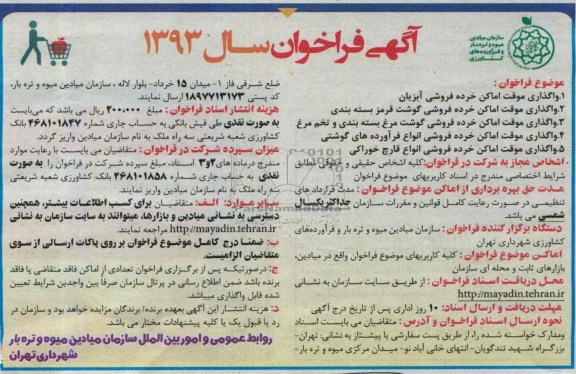 آگهی فراخوان سال ۱۳۹۳
سازمان میادین
میوه و تره بار
و فرآورده‌های
کشاورزی
موضوع فراخوان :
۱.واگذاری موقت اماکن خرده فروشی آبزیان
۲.واگذاری موقت اماکن خرده فروشی گوشت قرمز بسته بندی
۳.واگذاری موقت اماکن خرده فروشی گوشت مرغ بسته بندی و تخم مرغ
۴.واگذاری موقت اماکن خرده فروشی انواع فرآورده های گوشتی
۵.واگذاری موقت اماکن خرده فروشی انواع قارچ خوراکی
اشخاص مجاز به شرکت در فراخوان:کلیه اشخاص حقیقی و مطابق
شرایط اختصاصی مندرج در اسناد کاربریهای موضوع فراخوان
مدت حق بهره برداری از اماکن موضوع فراخوان : مدت قراردادهای
تنظیمی در صورت رعایت کامل قوانین و مقررات سازمان حداکثر یکسال
شمسی می باشد.
دستگاه برگزار کننده فراخوان : سازمان میادین میوه و تره بار و فرآورده‌های
کشاورزی شهرداری تهران
اماکن موضوع فراخوان : کلیه کاربریهای موضوع فراخوان واقع در میادین،
بازارهای ثابت و محله ای سازمان
محل دریافت اسناد فراخوان : از طریق سایت سازمان به نشانی
http://mayadin.tehran.ir
مهلت دریافت و ارسال اسناد: ۱۰ روز اداری پس از تاریخ درج آگهی
نحوه ارسال اسناد فراخوان و آدرس : متقاضیان می بایست اسناد
ومدارک خواسته شده را، از طریق پست سفارشی یا پیشتاز به نشانی: تهران-
بزرگراه شهید تندگویان- انتهای خانی آباد نو- میدان مرکزی میوه و تره بار-
ضلع شرقی فاز ۱- میدان ۱۵ خرداد- بلوار لاله ، سازمان میادین میوه و تره بار،
کد پستی ۱۸۹۷۷۱۳۱۷۳ ارسال نمایند.
هزینه انتشار اسناد فراخوان : مبلغ ۲۰۰.۰۰۰ ریال می باشد که می‌بایست
به صورت نقدی طی فیش بانکی به حساب جاری شماره ۴۶۸۱۰۱۸۴۷ بانک
کشاورزی شعبه شریعتی سه راه ملک به نام سازمان میادین واریز گردد.
میزان سپرده شرکت در فراخوان : متقاضیان می بایست با رعایت موارد
مندرج درماده های۲و۳ اسناد، مبلغ سپرده شرکت در فراخوان را به صورت
نقدی به حساب جاری شماره ۴۶۸۱۰۱۸۵۸ بانک کشاورزی شعبه شریعتی
سه راه ملک به نام سازمان میادین واریز نمایند.
سایر موارد: الف: متقاضیان برای کسب اطلاعات بیشتر، همچنین
دسترسی به نشانی میادین و بازارها، میتوانند به سایت سازمان به نشانی
http://mayadin.tehran.ir مراجعه نمایند.
ب: ضمنا درج کامل موضوع فراخوان بر روی پاکات ارسالی از سوی
متقاضیان الزامیست.
ج: درصورتیکه پس از برگزاری فراخوان تعدادی از اماکن فاقد متقاضی یا فاقد
برنده باشد ضمن اطلاع رسانی در پرتال سازمان صرفاً بین واجدین شرایط تعیین
شده قابل واگذاری میباشد.
د: هزینه انتشار این آگهی بعهده برنده/برندگان مزایده خواهد بود و سازمان در
رد یا قبول یک یا کلیه پیشنهادات مختار می باشد.
روابط عمومی و امور بین الملل سازمان میادین میوه و تره بار
شهرداری تهران